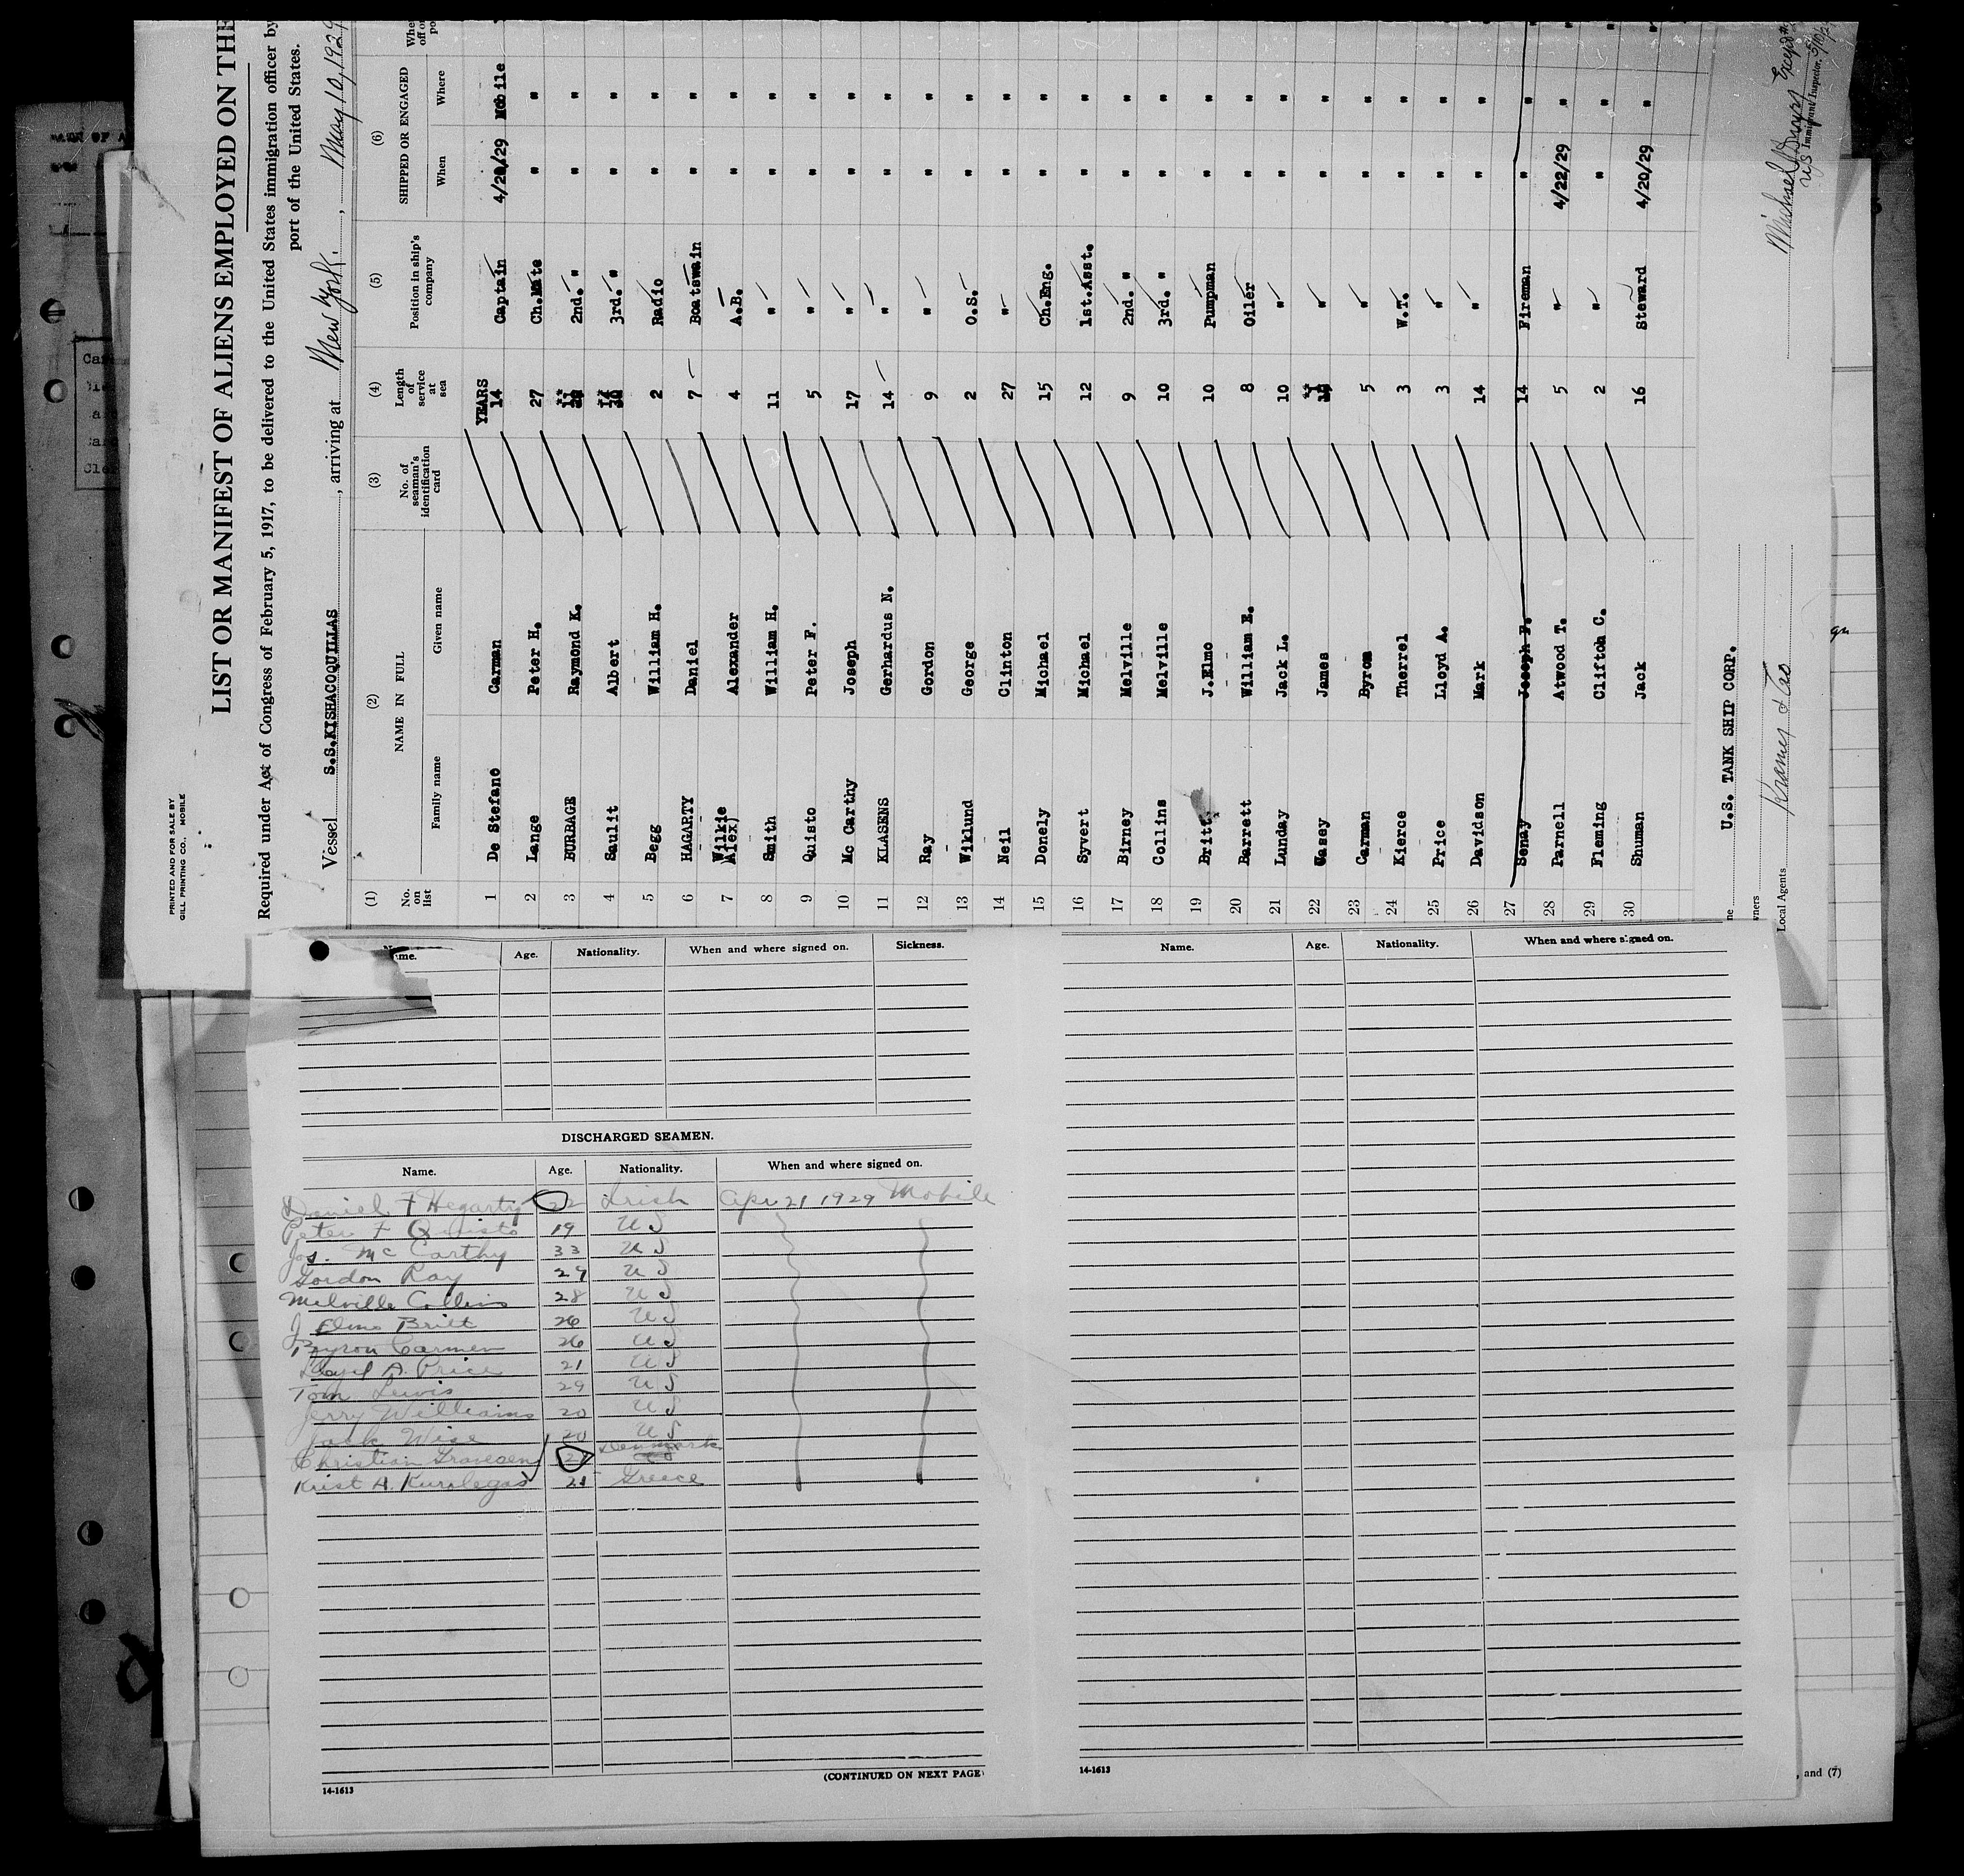 PRINTED AND FOR SALE BY
GILL PRINTING CO., MOBILE
LIST OR MANIFEST OF ALIENS EMPLOYED ON THE
Required under Act of Congress of February 5, 1917, to be delivered to the United States immigration officer by
port of the United States.
Vessel S.S.KISHACOQUILLAS, arriving at New York., May 10, 1929
(1) (2) (3) (4) (5) (6)
No. on list NAME IN FULL No. of seaman's identification card Length of service at sea Position in ship's company SHIPPED OR ENGAGED
Family name Given name When Where
YEARS
1 De Stefano Carman 14 Captain 4/20/29 Mobile
2 Lange Peter H. 27 Ch.Mate " "
3 BURBAGE Raymond K. 11 2nd. " " "
4 Saulit Albert 3rd. " " "
5 Begg William H. 2 Radio " "
6 HAGARTY Daniel 7 Boatswain " "
7 Wilkie Alexander 4 A.B. " "
Alex)
8 Smith William H. 11 " " "
9 Quisto Peter F. 5 " " "
10 Mc Carthy Joseph 17 " " "
11 KLASENS Gerhardus N. 14 " " "
12 Ray Gordon 9 " " "
13 Wiklund George 2 O.S. " "
14 Neil Clinton 27 " " "
15 Donely Michael 15 Ch.Eng. " "
16 Syvert Michael 12 1st.Asst. " "
17 Birney Melville 9 2nd. " " "
18 Collins Melville 10 3rd. " " "
19 Britt, J.Elmo 10 Pumpman " "
20 Barrett William E. 8 Oiler " "
21 Lunday Jack L. 10 " " "
22 Casey James " " "
23 Carman Byrom 5 " " "
24 Kierce Therrel 3 W.T. " "
25 Price Lloyd A. 3 " " "
26 Davidson Mark 14 " " "
27 Senay Joseph P. 14 Fireman " "
28 Parnell Atwood T. 5 " 4/22/29 "
29 Fleming Clifton C. 2 " " "
30 Shuman Jack 16 Steward 4/20/29 "
U.S. TANK SHIP CORP.
Local Agents
Immigrant Inspector.
Name. Age. Nationality. When and where signed on. Sickness.
DISCHARGED SEAMEN.
Name. Age. Nationality. When and where signed on.
Daniel F Hegarty 22 Irish Apr 21 1929 Mobile
Peter F Quisto 19 U S
Jos. McCarthy 33 U S
Gordon Ray 29 U S
Melville Collins 28 U S
J Elmo Britt 26 U S
Byron Carmen 26 U S
Lloyd A. Price 21 U S
Tom Lewis 29 U S
Jerry Williams 20 U S
Jack Wise 20 U S
Christian Gravesen Denmark
Krist A. Greece
(CONTINUED ON NEXT PAGE)
14-1613
Name. Age. Nationality. When and where signed on.
14-1613
, and (7)